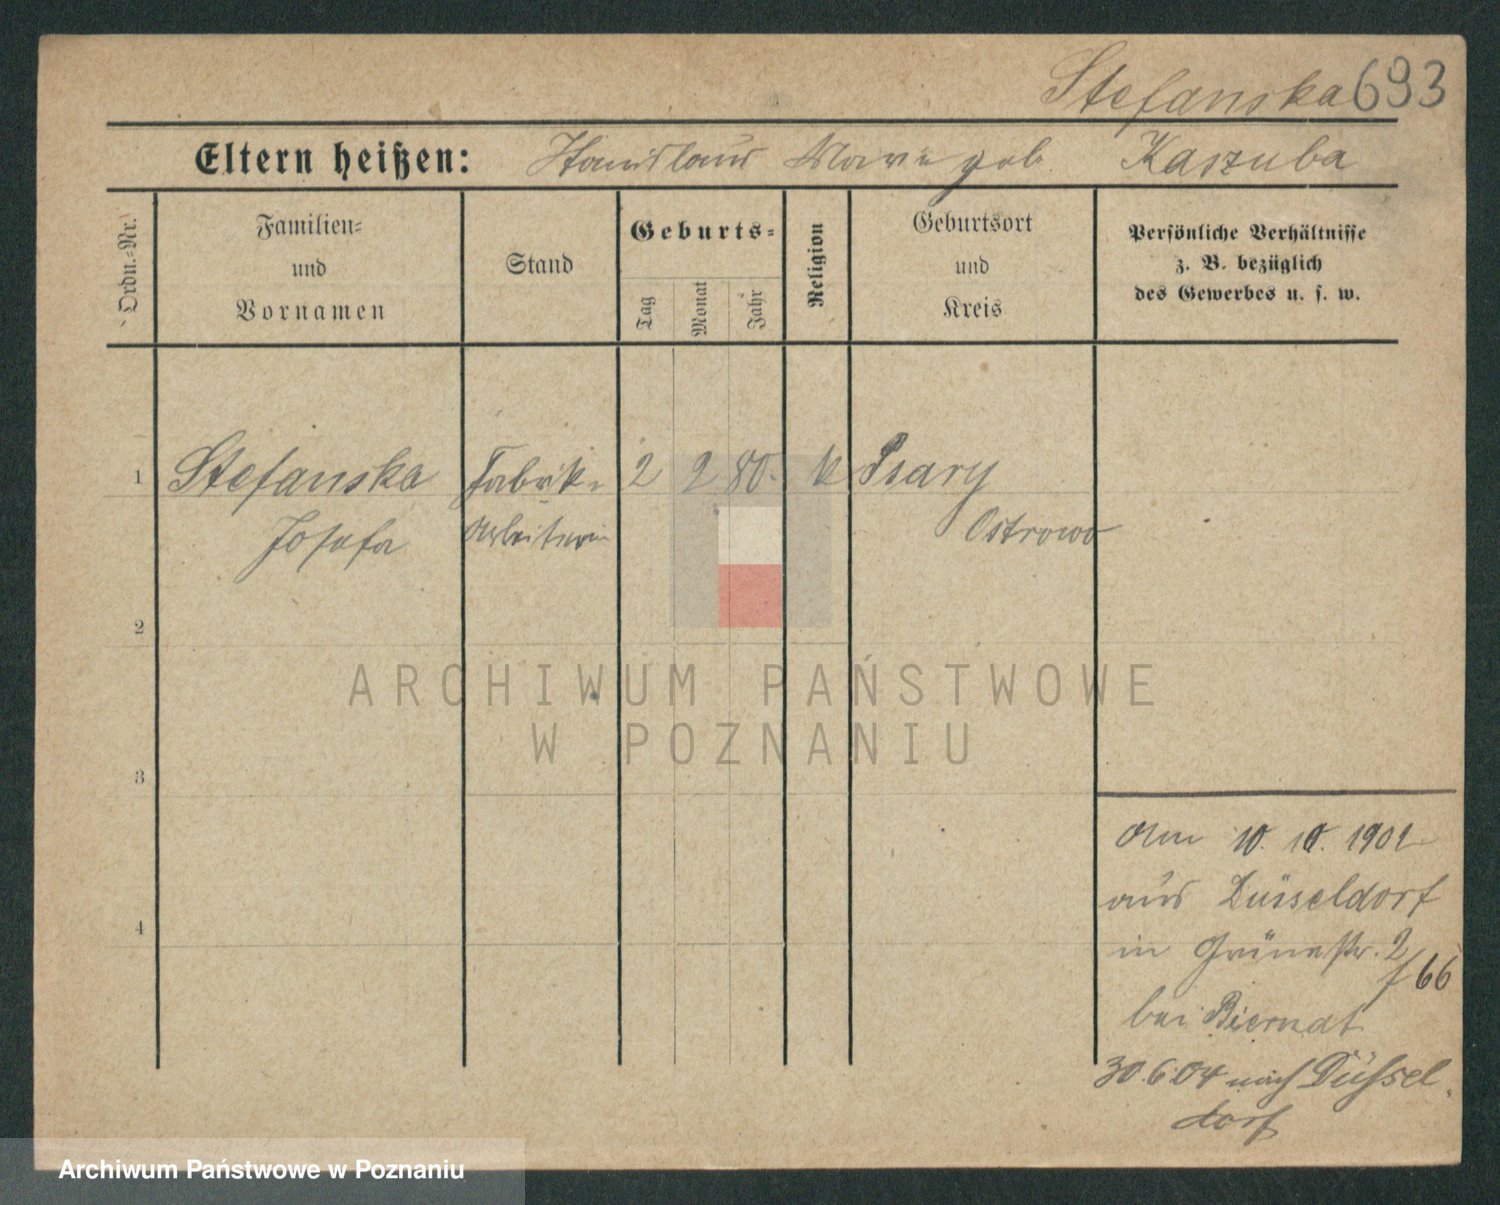 Stefanska 693
Eltern heißen: Stanislaus Marie geb. Kaszuba
Ordn.-Nr.
Familien-
und
Vornamen
Stand
Geburts-
Tag
Monat
Jahr
Religion
Geburtsort
und
Kreis
Persönliche Verhältnisse
z. B. bezüglich
des Gewerbes u. s. w.
1 Stefanska Fabrik- 2 2 80. k Psary
Josefa Arbeiterin Ostrowo
2
3
4
Am 10. 10. 1902
aus Düsseldorf
in Grünestr. 2/66
bei Biernat
30.6.04 nach Düssel-
dorf
ARCHIWUM PAŃSTWOWE
W POZNANIU
Archiwum Państwowe w Poznaniu